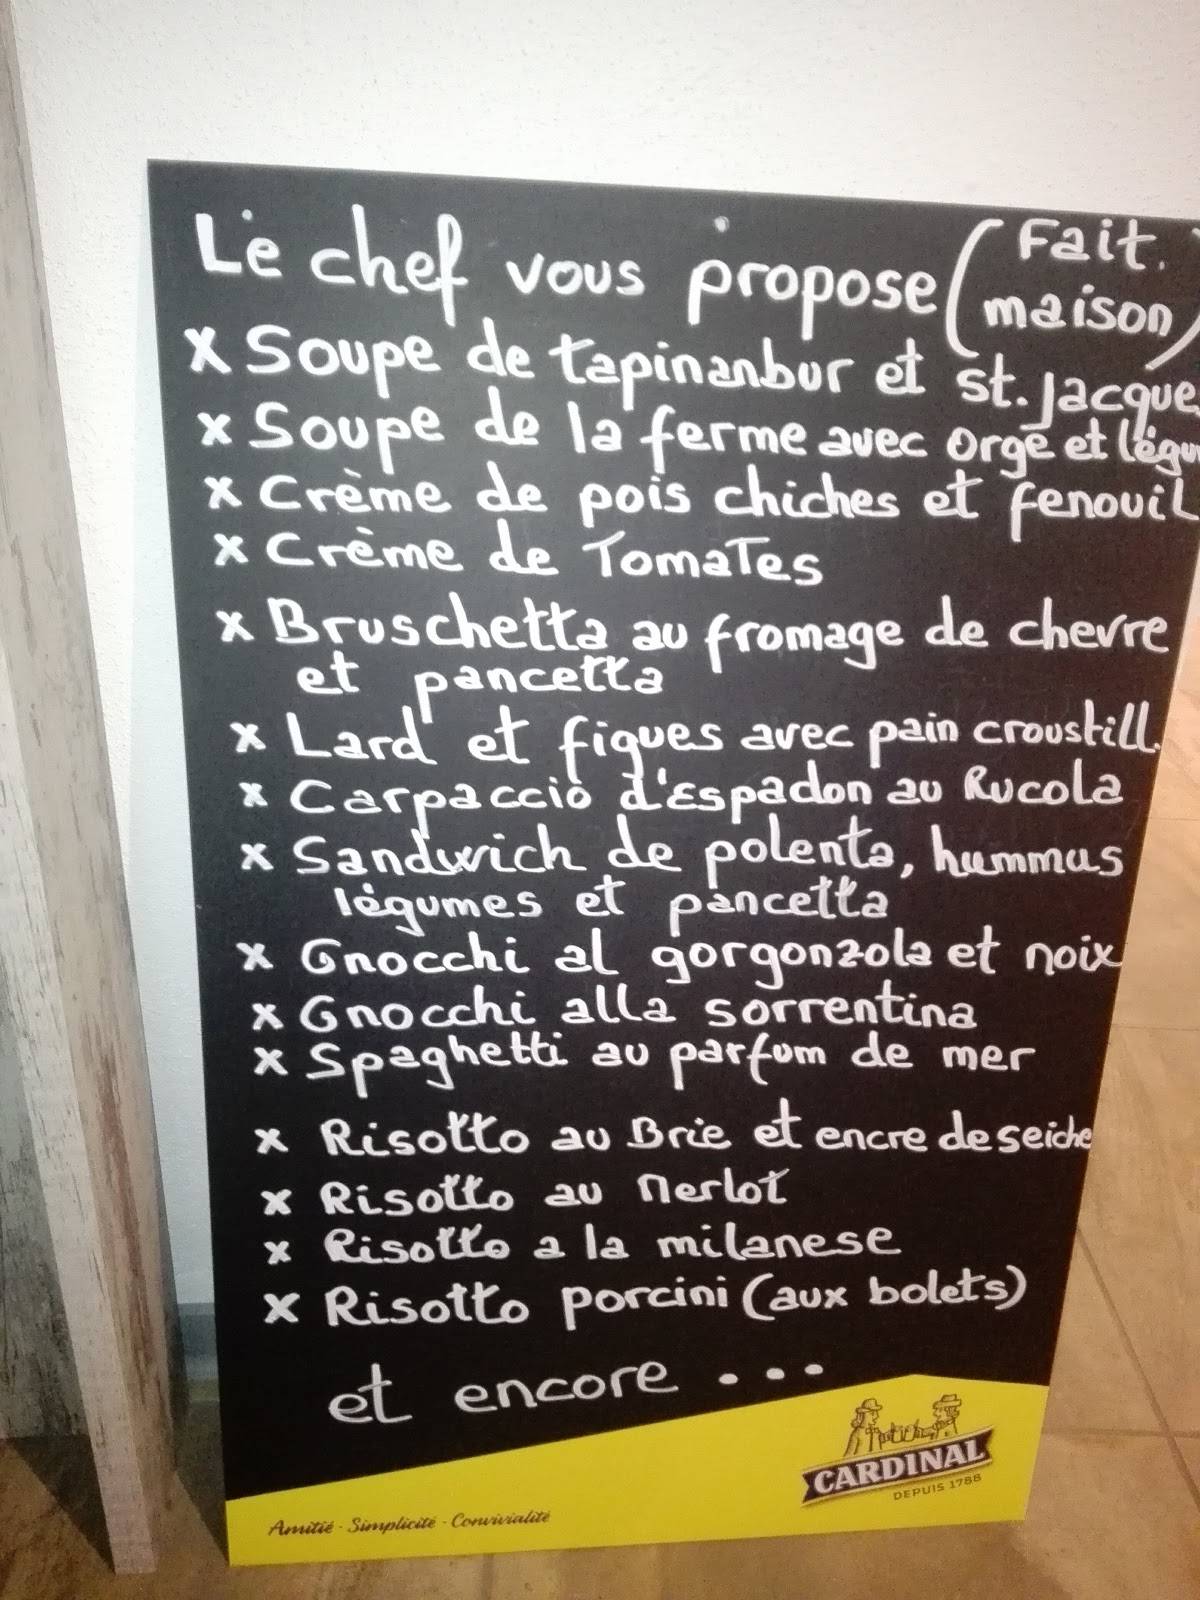 Le chef vous propose (Fait.
maison)
x Soupe de tapinanbur et st. Jacque
x Soupe de la ferme avec orge et légu
x Crème de pois chiches et fenouil
x Crème de Tomates
x Bruschetta au fromage de chevre
et pancetta
x Lard et figues avec pain croustill.
x Carpaccio d'Espadon au Rucola
x Sandwich de polenta, hummus
légumes et pancetta
x Gnocchi al gorgonzola et noix
x Gnocchi alla sorrentina
x Spaghetti au parfum de mer
x Risotto au Brie et encre de seiche
x Risotto au Merlot
x Risotto a la milanese
x Risotto porcini (aux bolets)
et encore ...
CARDINAL
DEPUIS 1788
Amitié - Simplicité - Convivialité